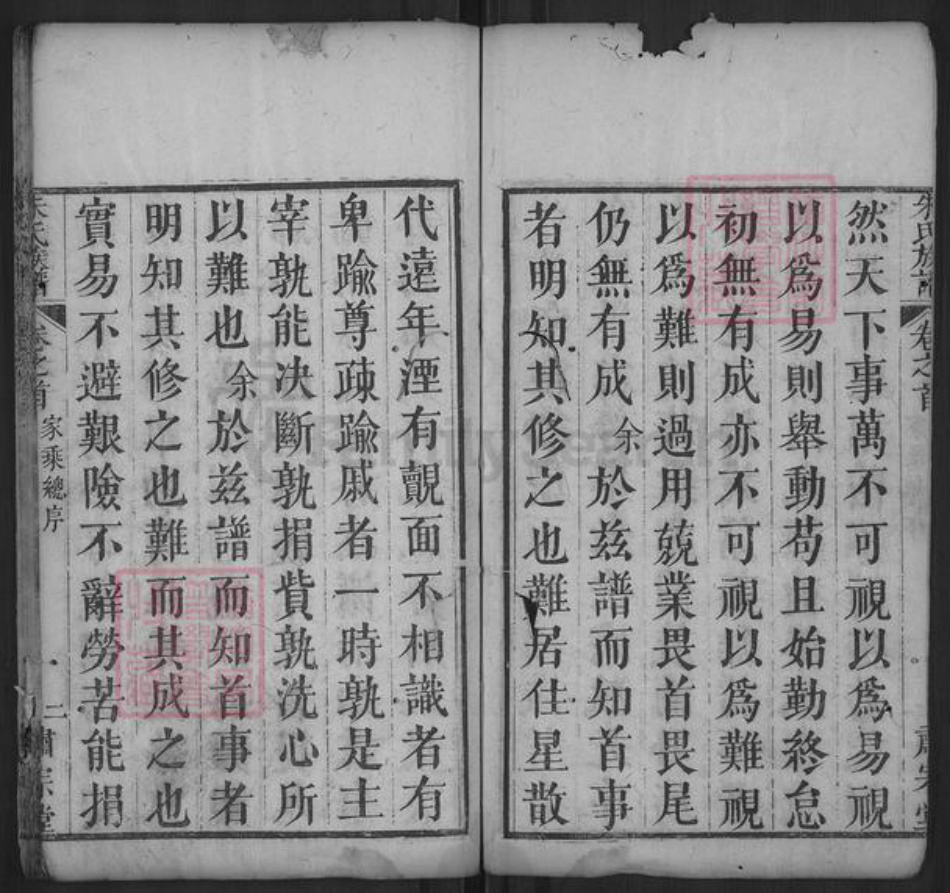 然天下事萬不可視以爲易視
以爲易則舉動苟且始勤終怠
初無有成亦不可視以爲難視
以爲難則過用兢業畏首畏尾
仍無有成余於兹譜而知首事
者明知其修之也難居住星散
代遠年湮有覿面不相識者有
卑踰尊疎踰戚者一時孰是主
宰孰能决斷孰捐貲孰洗心所
以難也余於兹譜而知首事者
明知其修之也難而其成之也
實易不避艱險不辭勞苦能捐
朱氏族譜 卷之首 家乘總序 二 肅宗堂